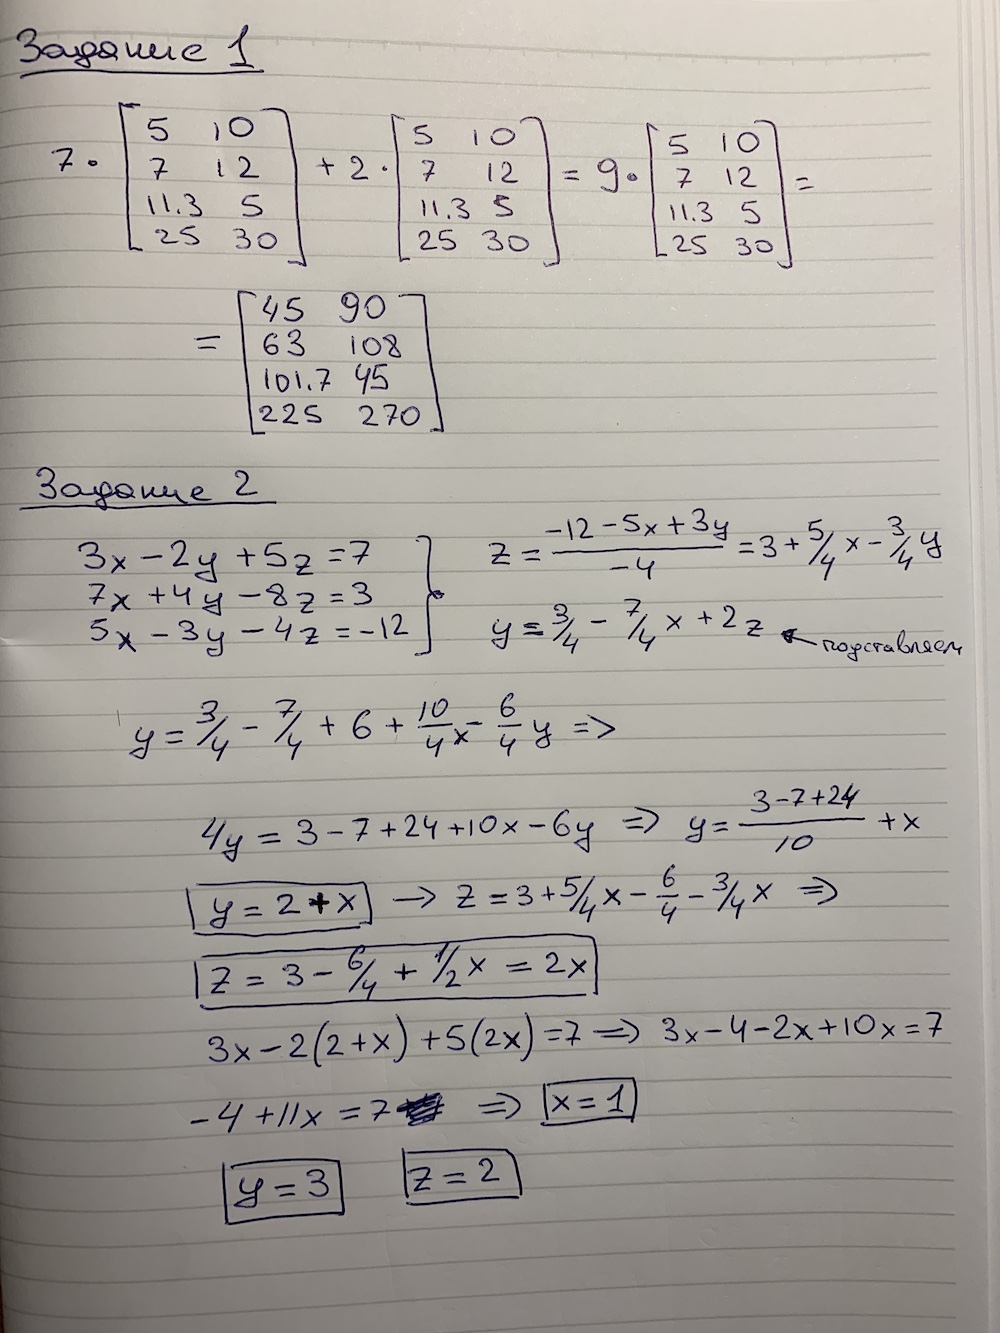 Задание 1
7 · [5 10; 7 12; 11.3 5; 25 30] + 2 · [5 10; 7 12; 11.3 5; 25 30] = 9 · [5 10; 7 12; 11.3 5; 25 30] =
= [45 90; 63 108; 101.7 45; 225 270]
Задание 2
3x - 2y + 5z = 7
7x + 4y - 8z = 3
5x - 3y - 4z = -12
z = (-12 - 5x + 3y)/-4 = 3 + 5/4 x - 3/4 y
y = 3/4 - 7/4 x + 2z ← подставляем
y = 3/4 - 7/4 + 6 + 10/4 x - 6/4 y =>
4y = 3 - 7 + 24 + 10x - 6y => y = (3 - 7 + 24)/10 + x
y = 2 + x → z = 3 + 5/4 x - 6/4 - 3/4 x =>
z = 3 - 6/4 + 1/2 x = 2x
3x - 2(2+x) + 5(2x) = 7 => 3x - 4 - 2x + 10x = 7
-4 + 11x = 7 => x = 1
y = 3 z = 2